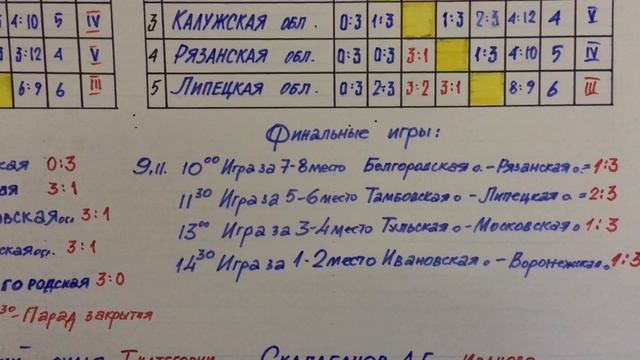 4:10 5 IV
3:12 4 V
6:9 6 III
3 КАЛУЖСКАЯ ОБЛ. 0:3 1:3 1:3 2:3 4:12 4 V
4 РЯЗАНСКАЯ ОБЛ. 0:3 0:3 3:1 1:3 4:10 5 IV
5 ЛИПЕЦКАЯ ОБЛ. 0:3 2:3 3:2 3:1 8:9 6 III
ФИНАЛЬНЫЕ ИГРЫ:
9.11. 10⁰⁰ Игра за 7-8 место Белгородская о. – Рязанская о. = 1:3
11³⁰ Игра за 5-6 место Тамбовская о – Липецкая о. = 2:3
13⁰⁰ Игра за 3-4 место Тульская о – Московская о 1:3
14³⁰ Игра за 1-2 место Ивановская о – Воронежская о 1:3
кая 0:3
ая 3:1
овская 3:1
ская 3:1
городская 3:0
³⁰-Парад закрытия